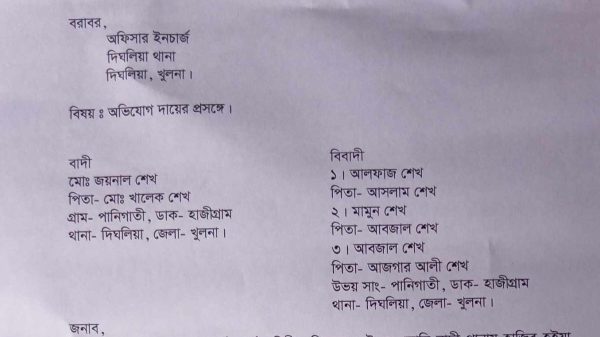 বরাবর,
অফিসার ইনচার্জ
দিঘলিয়া থানা
দিঘলিয়া, খুলনা।
বিষয় ঃ অভিযোগ দায়ের প্রসঙ্গে।
বাদী
মোঃ জয়নাল শেখ
পিতা- মোঃ খালেক শেখ
গ্রাম- পানিগাতী, ডাক- হাজীগ্রাম
থানা- দিঘলিয়া, জেলা- খুলনা।
বিবাদী
১। আলফাজ শেখ
পিতা- আসলাম শেখ
২। মামুন শেখ
পিতা- আবজাল শেখ
৩। আবজাল শেখ
পিতা- আজগার আলী শেখ
উভয় সাং- পানিগাতী, ডাক- হাজীগ্রাম
থানা- দিঘলিয়া, জেলা- খুলনা।
জনাব,